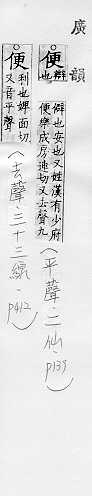 廣韻
便辯也
僻也安也又姓漢有少府
便樂成房連切又去聲九
(平聲·二仙·p139)
便利也婢面切
又音平聲
(去聲·三十三線·p412)